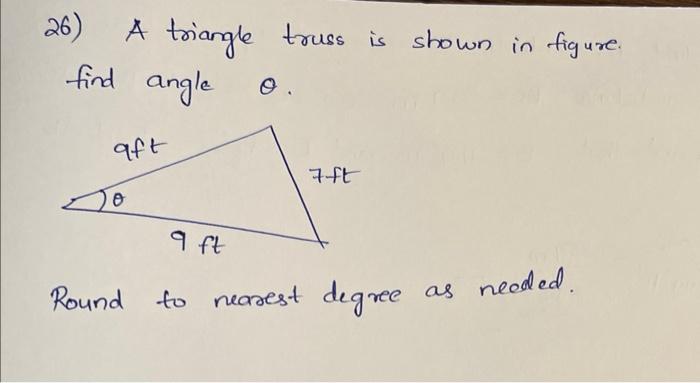 26) A triangle truss is shown in figure.
find angle θ.
9ft
7ft
θ
9 ft
Round to nearest degree as needed.